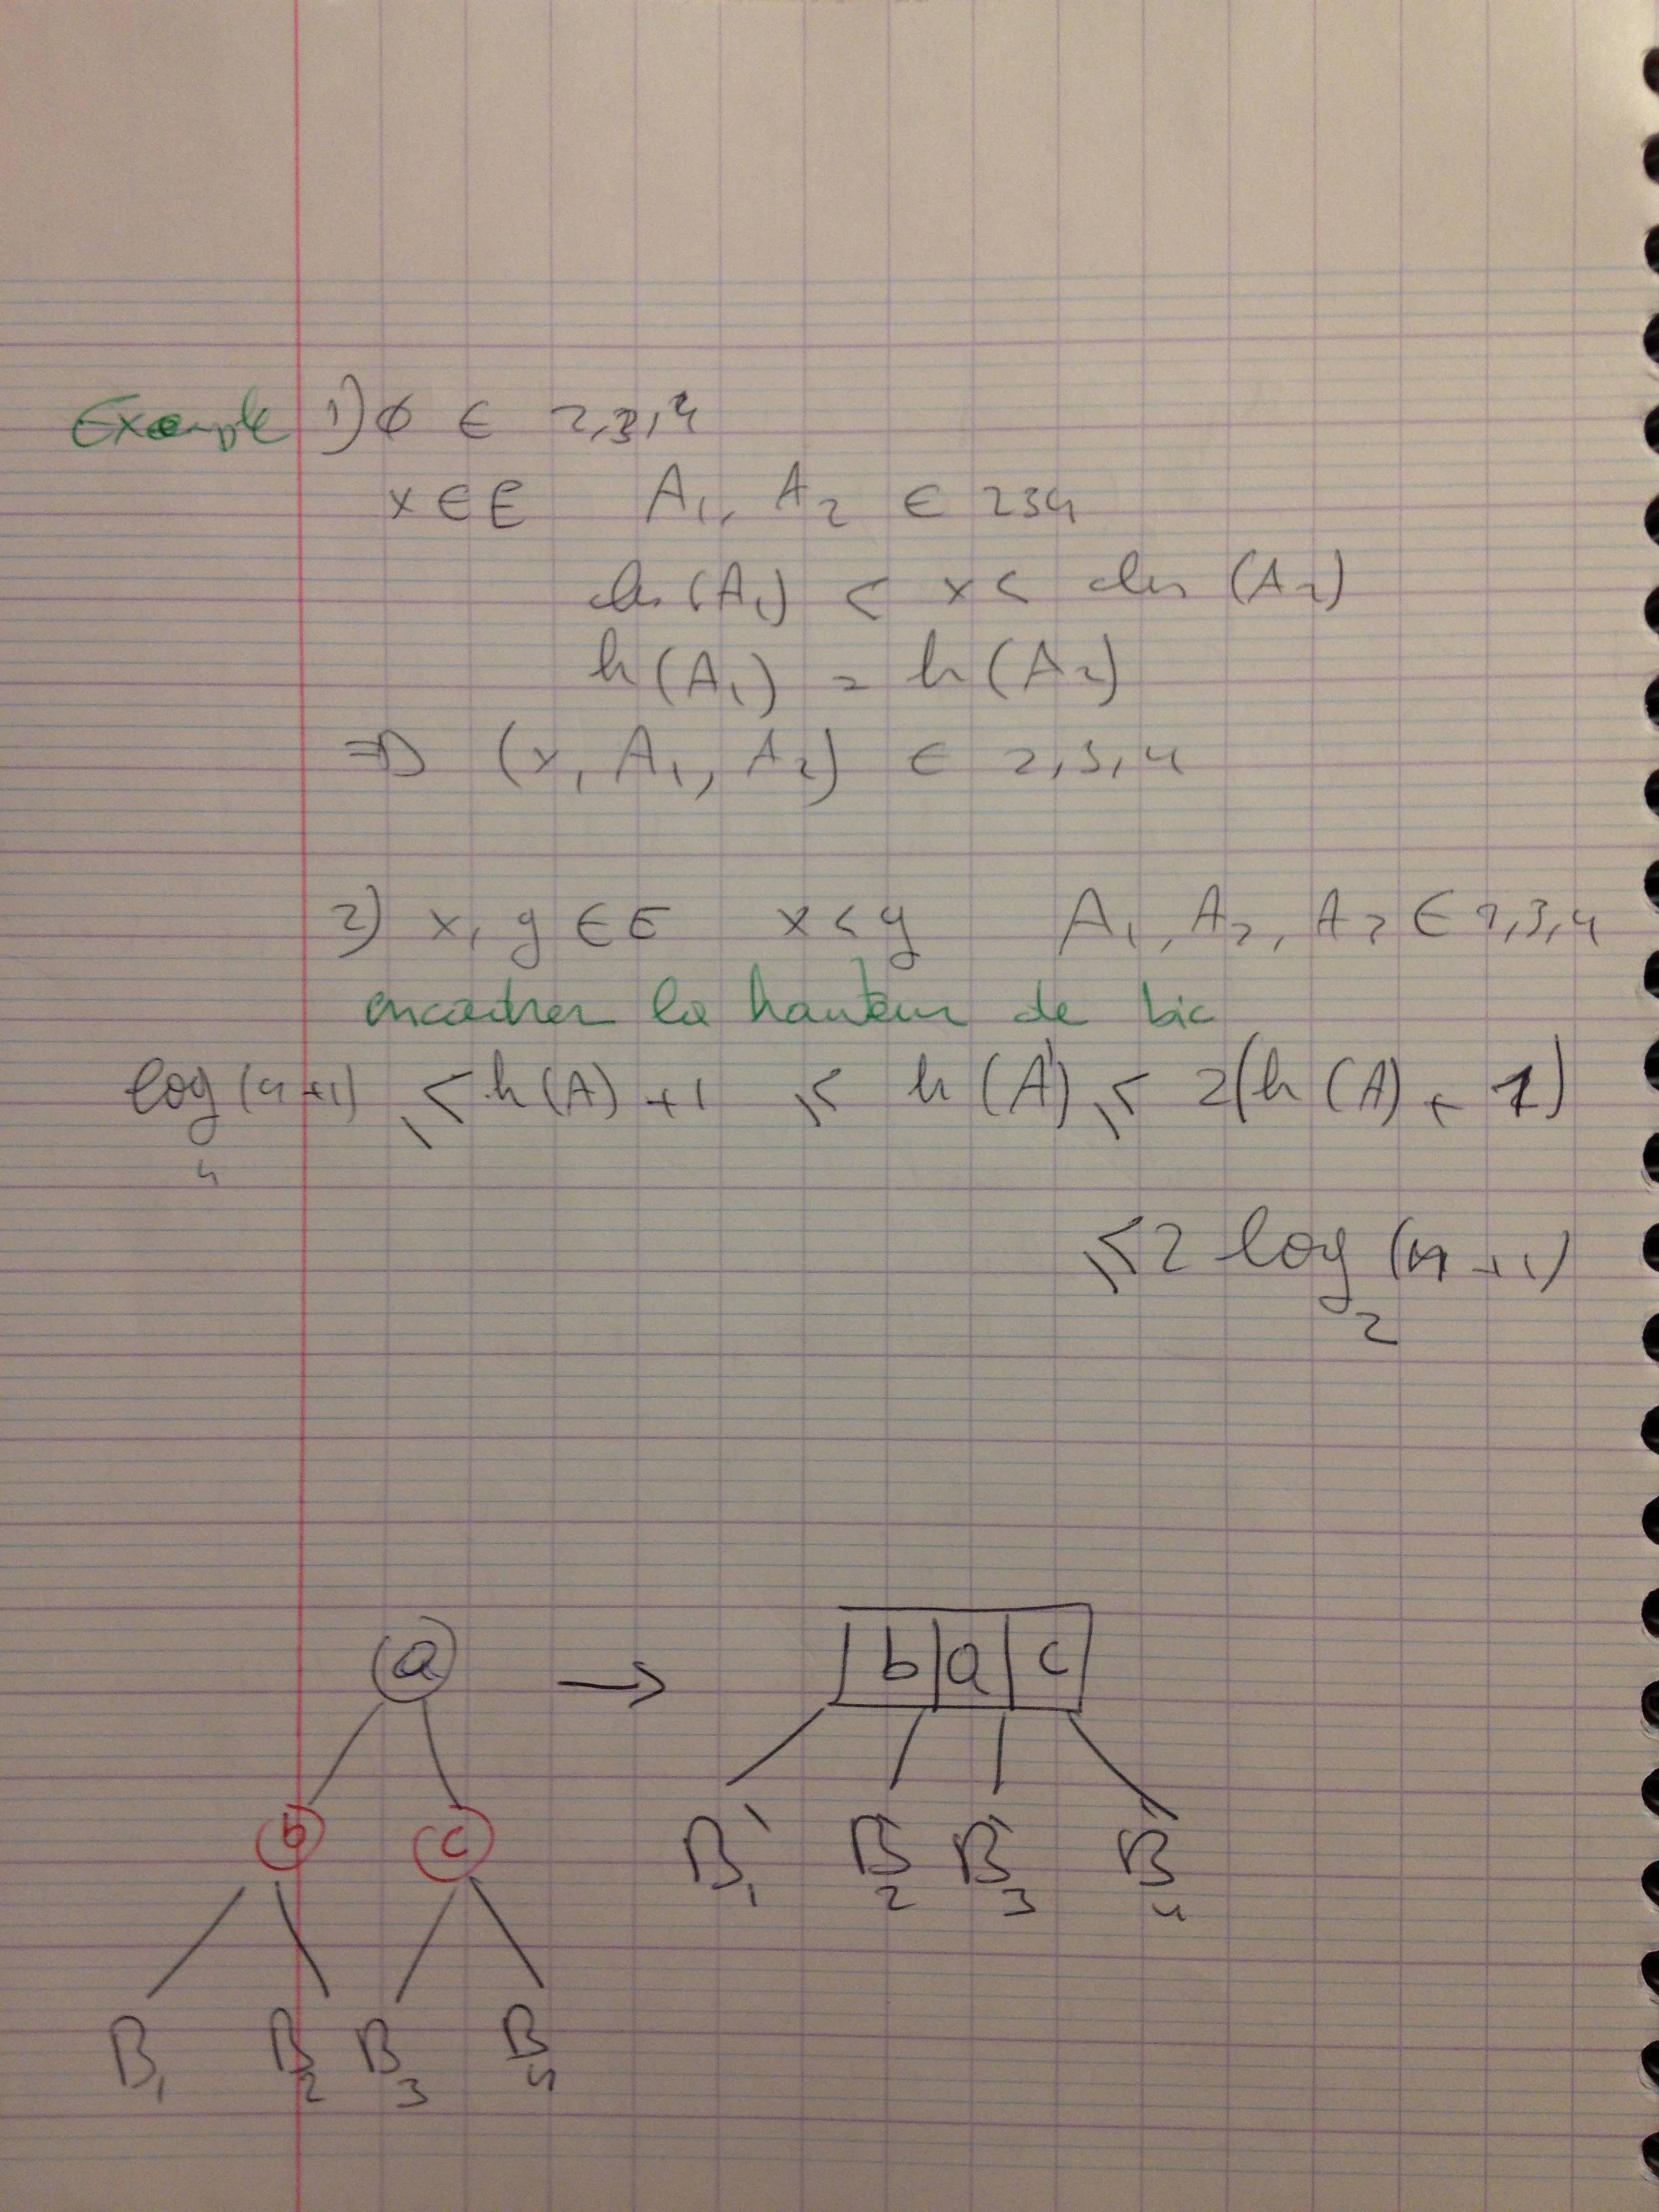 Example 1) ∅ ∈ 2,3,4
x ∈ E A₁, A₂ ∈ 234
cles (A₁) < x < cles (A₂)
h(A₁) = h(A₂)
=> (x, A₁, A₂) ∈ 2,3,4
2) x, y ∈ E x < y A₁, A₂, A₃ ∈ 2,3,4
encadrer la hauteur de bic
log₄(n+1) ≤ h(A)+1 ≤ h(A') ≤ 2(h(A)+1)
≤ 2 log₂(n+1)
a → b a c
b c B₁' B₂' B₃' B₄'
B₁ B₂ B₃ B₄